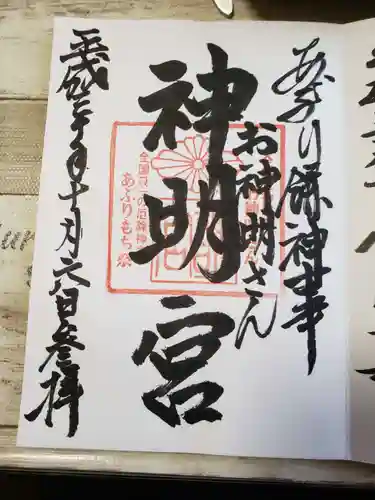 あぶり餅神事
お神明さん
神明宮
全国唯一の厄除神事
あぶりもち祭
平成三十年十月六日参拝